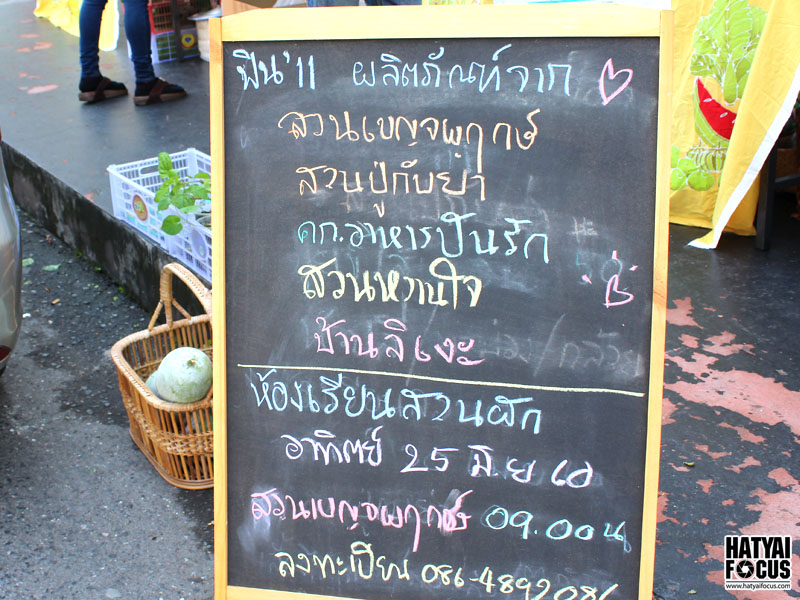 ฟิน'11 ผลิตภัณฑ์จาก
สวนเบญจพฤกษ์
สวนปู่กับย่า
คก.อาหารปันรัก
สวนหวานใจ
บ้านลิเงะ
ห้องเรียนสวนผัก
อาทิตย์ 25 มิ.ย 60
สวนเบญจพฤกษ์ 09.00 น
ลงทะเบียน 086-4892086
HATYAI
FOCUS
www.hatyaifocus.com